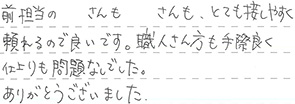 前担当の　　さんも　　さんも、とても接しやすく
頼れるので良いです。職人さん方も手際良く
仕上りも問題なしでした。
ありがとうございました。